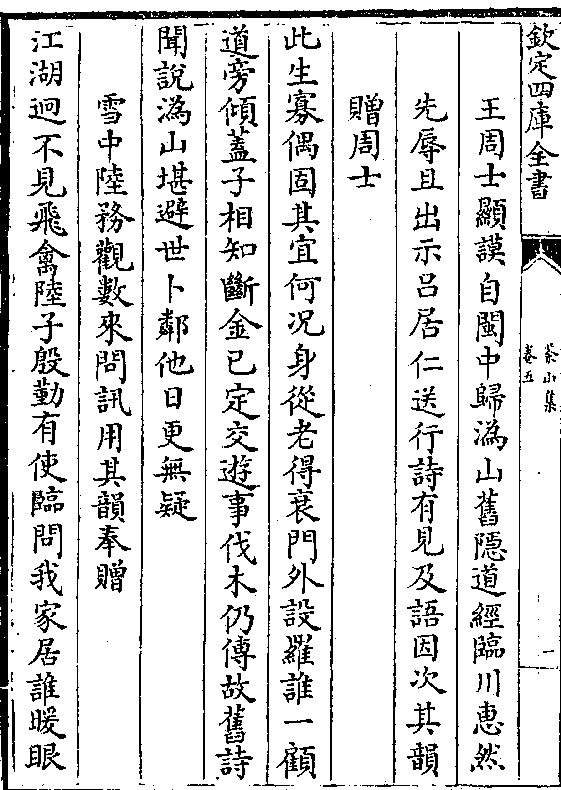 欽定四庫全書
茶山集
卷五
一
王周士顯謨自閩中歸溈山舊隱道經臨川惠然
先辱且出示呂居仁送行詩有見及語因次其韻
贈周士
此生寡偶固其宜何况身從老得衰門外設羅誰一顧
道旁傾蓋子相知斷金已定交遊事伐木仍傳故舊詩
聞說溈山堪避世卜鄰他日更無疑
雪中陸務觀數來問訊用其韻奉贈
江湖迥不見飛禽陸子殷勤有使臨問我家居誰暖眼